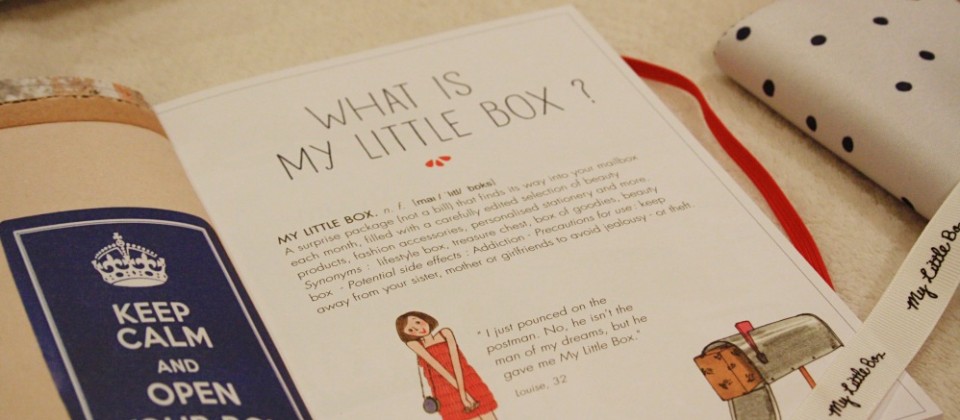 KEEP
CALM
AND
OPEN
WHAT IS
MY LITTLE BOX ?
MY LITTLE BOX. n. f. [maɪ / 'lɪtl/ bɒks]
A surprise package (not a bill) that finds its way into your mailbox
each month, filled with a carefully edited selection of beauty
products, fashion accessories, personalised stationery and more.
Synonyms : lifestyle box, treasure chest, box of goodies, beauty
box - Potential side effects : Addiction - Precautions for use : keep
away from your sister, mother or girlfriends to avoid jealousy - or theft.
" I just pounced on the
postman. No, he isn't the
man of my dreams, but he
gave me My Little Box."
Louise, 32
My Little Box
My Little Box